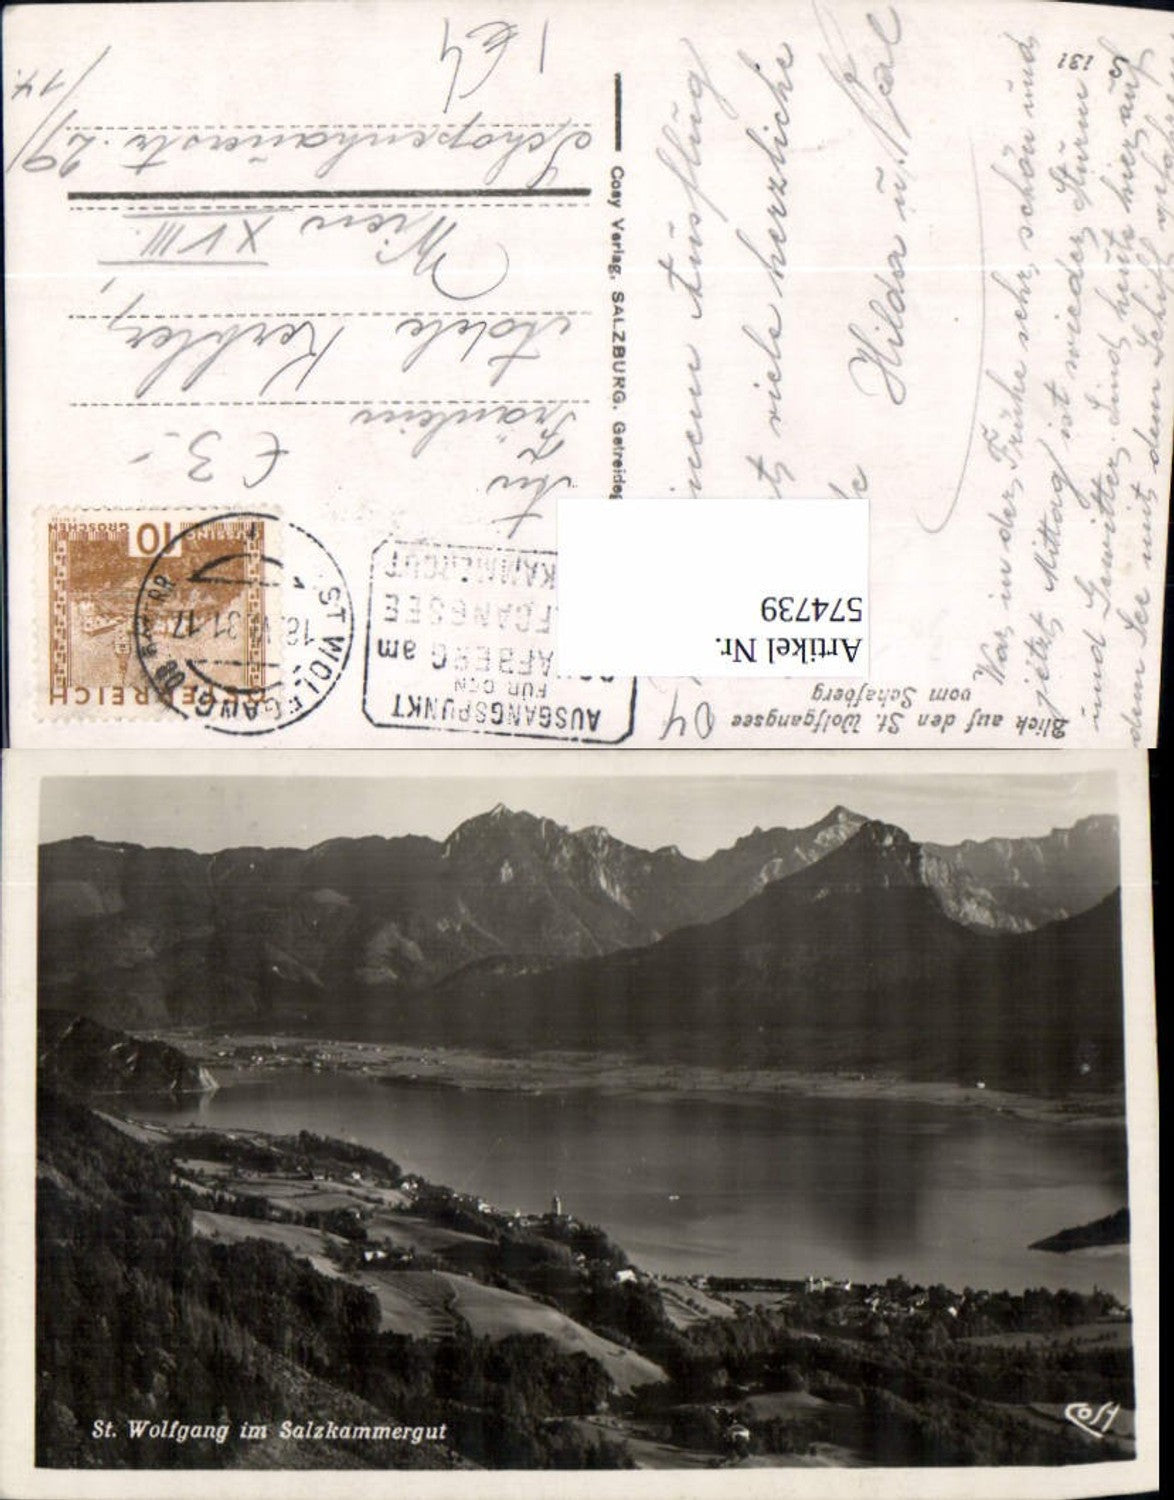 1 € 4
Schopenhauerstr. 29/14.
Wien XVIII
Kerbler,
Fräulein
An
€ 3.-
Cosy Verlag, SALZBURG, Getreideg
ÖSTERREICH
10
GROSCHEN
ST WOLFGANG
31.17
AUSGANGSPUNKT
FÜR DEN
AFBERG am
FGANGSEE
KAMMERGUT
Artikel Nr.
574739
Blick auf den St. Wolfgangsee
vom Schafberg
04
S 131
Ausflug
viele herzliche
Hilda u.
War in der Frühe sehr schön und
jetzt Mittag ist wieder Sturm
und Gewitter. Sind heute hier auf
dem See mit dem Schiff
St. Wolfgang im Salzkammergut
Cosy